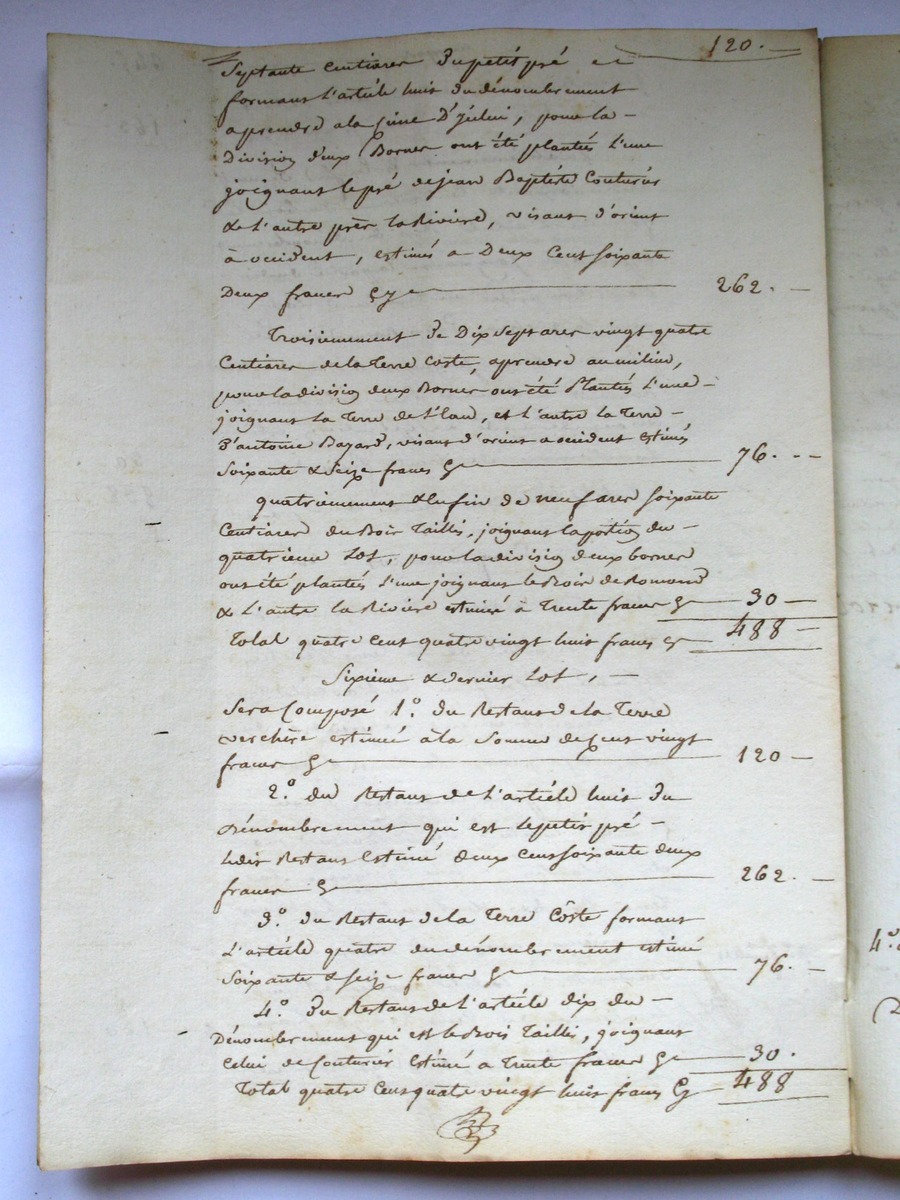 120.
Septante Centiares du petit pré et
formant l'article huit du dénombrement
a prendre a la Cime D'Julin, pour la
Division deux Bornes ont été plantés L'une
joignant le pré de jean Baptiste Couturier
& L'autre près la Rivière, visant d'orient
à occident, estimés a Deux Cent soixante
Deux francs Cy 262.
Troisiemement de Dix sept ares vingt quatre
Centiares de la Terre Coste, a prendre au milieu,
pour la division deux Bornes ont été Plantés L'une
joignant la Terre de l'Eau, et L'autre la Terre
d'antoine Bayard, visant d'orient a occident estimés
Soixante & Seize francs Cy 76.
quatriemement & Enfin de neuf ares soixante
Centiares du Bois Taillis, joignant la portion du
quatrieme Lot, pour la division deux bornes
ont été plantés L'une joignant le Bois de Romand
& L'autre la Rivière estimés à Trente francs Cy 30
Total quatre Cent quatre vingt huit francs Cy 488
Sixieme & dernier Lot,
Sera Composé 1.º du Restant de la Terre
verchère estimée à la Somme de Cent vingt
francs Cy 120
2.º du Restant de L'article huit du
Dénombrement qui est le petit pré
Ledit Restant Estimé deux Cent soixante deux
francs Cy 262.
3.º du Restant de la Terre Côste formant
L'article quatre du dénombrement estimé
Soixante & seize francs Cy 76.
4.º du Restant de L'article dix du
Dénombrement qui est le Bois Taillis, joignant
Celui de Couturier Estimé a Trente francs Cy 30.
Total quatre Cent quatre vingt huit francs Cy 488
4.º